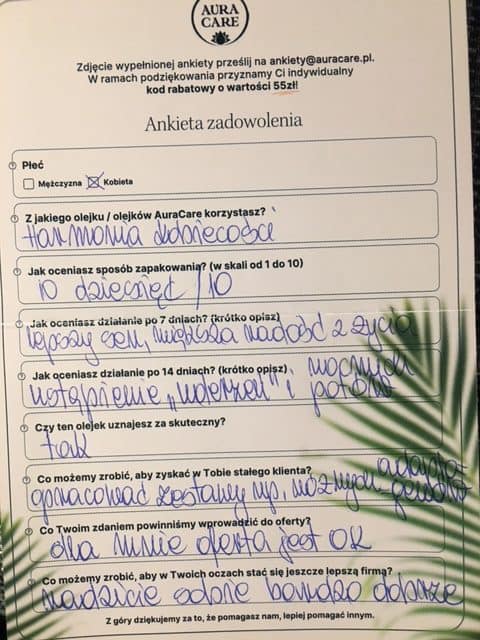 AURA
CARE
Zdjęcie wypełnionej ankiety prześlij na ankiety@auracare.pl.
W ramach podziękowania przyznamy Ci indywidualny
kod rabatowy o wartości 55zł!
Ankieta zadowolenia
Płeć
Mężczyzna Kobieta
Z jakiego olejku / olejków AuraCare korzystasz?
Harmonia kobiecości
Jak oceniasz sposób zapakowania? (w skali od 1 do 10)
10 dziesięć / 10
Jak oceniasz działanie po 7 dniach? (krótko opisz)
lepszy sen, większa radość z życia
Jak oceniasz działanie po 14 dniach? (krótko opisz)
ustąpienie „uderzeń" i
potów
Czy ten olejek uznajesz za skuteczny?
tak
Co możemy zrobić, aby zyskać w Tobie stałego klienta?
opracować zestawy np.
Co Twoim zdaniem powinniśmy wprowadzić do oferty?
dla mnie oferta jest OK
Co możemy zrobić, aby w Twoich oczach stać się jeszcze lepszą firmą?
radzicie sobie bardzo dobrze
Z góry dziękujemy za to, że pomagasz nam, lepiej pomagać innym.